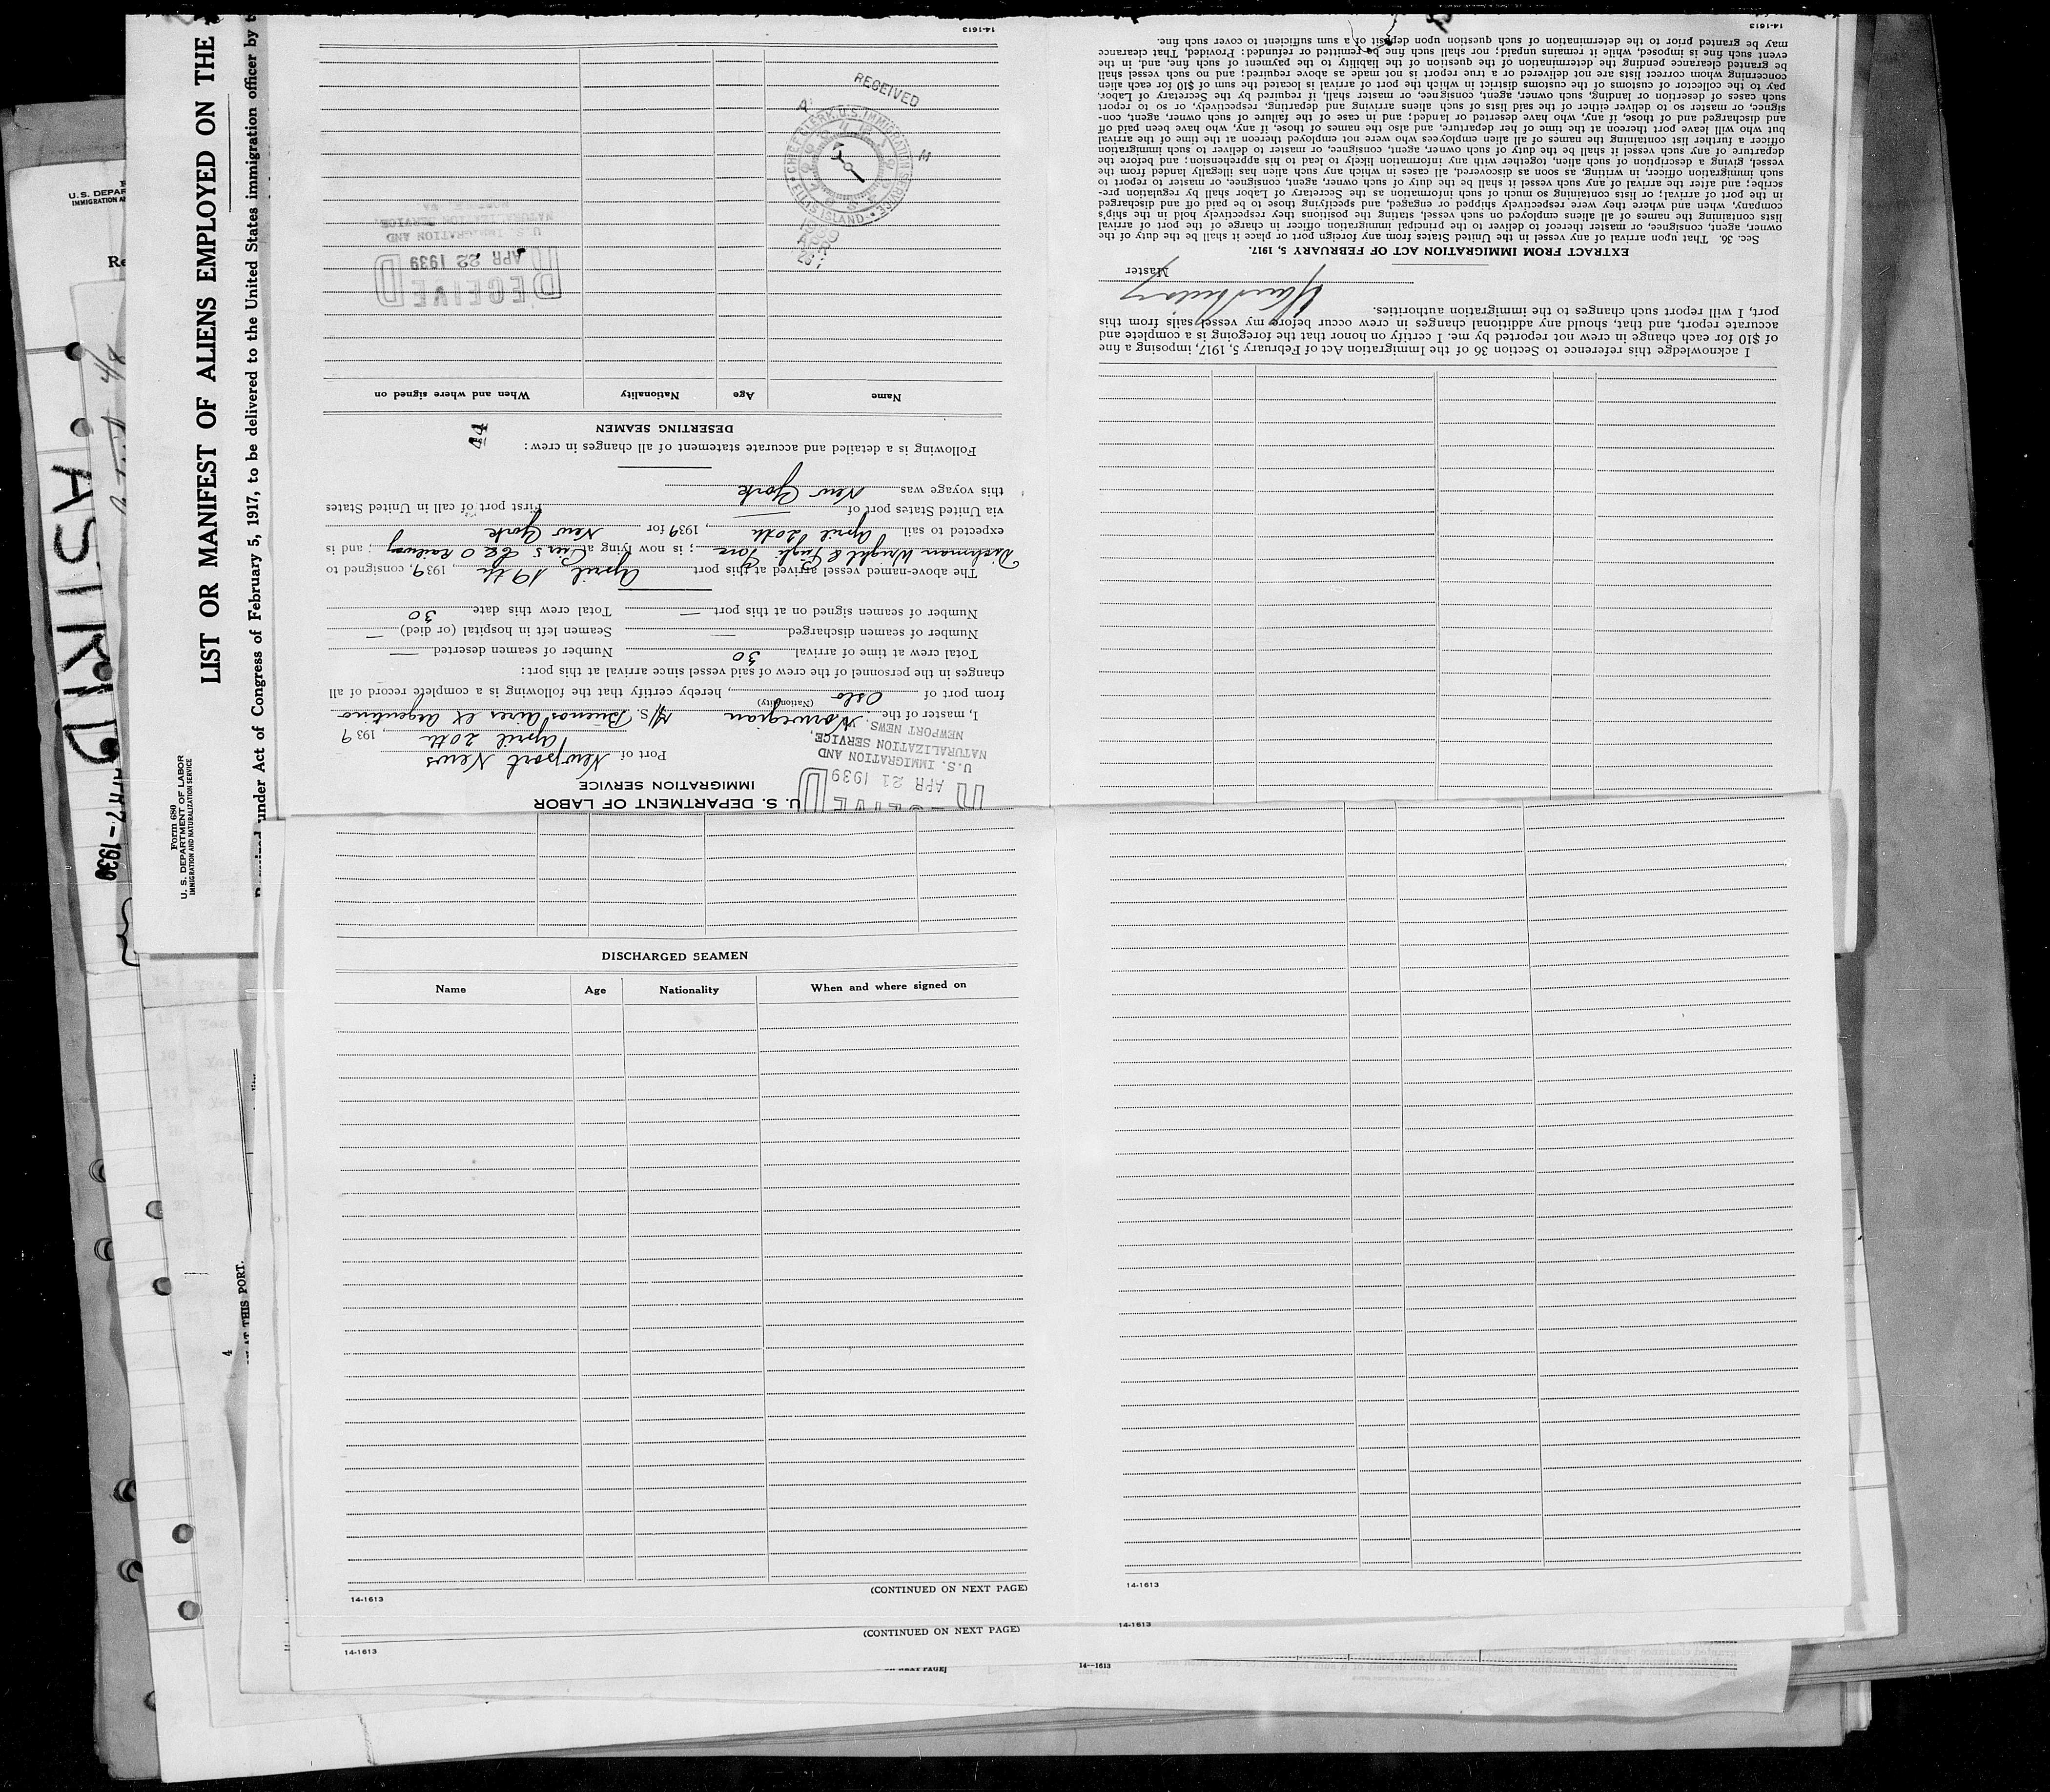 LIST OR MANIFEST OF ALIENS EMPLOYED ON THE
under Act of Congress of February 5, 1917, to be delivered to the United States immigration officer by
Form 680
U. S. DEPARTMENT OF LABOR
IMMIGRATION AND NATURALIZATION SERVICE
ASTRID
AT THIS PORT.
4
U. S. DEPARTMENT OF LABOR
IMMIGRATION SERVICE
APR 21 1939
U.S. IMMIGRATION AND
NATURALIZATION SERVICE,
NEWPORT NEWS,
Port of Newport News
April 20th, 1939
I, master of the Norwegian M/S. Buenos Aires ex Argentino
(Nationality)
from port of Oslo, hereby certify that the following is a complete record of all
changes in the personnel of the crew of said vessel since arrival at this port:
Total crew at time of arrival 30 Number of seamen deserted —
Number of seamen discharged — Seamen left in hospital (or died) —
Number of seamen signed on at this port — Total crew this date 30
The above-named vessel arrived at this port April 19th, 1939, consigned to
Dichman Wright & Pugh Inc; is now lying at C & O Railway; and is
expected to sail April 20th, 1939 for New York
via United States port of — First port of call in United States
this voyage was New York
Following is a detailed and accurate statement of all changes in crew:
44
DESERTING SEAMEN
Name Age Nationality When and where signed on
RECEIVED
APR 22 1939
U. S. IMMIGRATION AND
NATURALIZATION SERVICE,
RECEIVED
CHIEF CLERK U.S. IMMIGRATION SERVICE
ELLIS ISLAND
1939
APR
14-1613
I acknowledge this reference to Section 36 of the Immigration Act of February 5, 1917, imposing a fine
of $10 for each change in crew not reported by me. I certify on honor that the foregoing is a complete and
accurate report, and that, should any additional changes in crew occur before my vessel sails from this
port, I will report such changes to the immigration authorities.
Master
EXTRACT FROM IMMIGRATION ACT OF FEBRUARY 5, 1917.
Sec. 36. That upon arrival of any vessel in the United States from any foreign port or place it shall be the duty of the
owner, agent, consignee, or master thereof to deliver to the principal immigration officer in charge of the port of arrival
lists containing the names of all aliens employed on such vessel, stating the positions they respectively hold in the ship's
company, when and where they were respectively shipped or engaged, and specifying those to be paid off and discharged
in the port of arrival; or lists containing so much of such information as the Secretary of Labor shall by regulation pre-
scribe; and after the arrival of any such vessel it shall be the duty of such owner, agent, consignee, or master to report to
such immigration officer, in writing, as soon as discovered, all cases in which any such alien has illegally landed from the
vessel, giving a description of such alien, together with any information likely to lead to his apprehension; and before the
departure of any such vessel it shall be the duty of such owner, agent, consignee, or master to deliver to such immigration
officer a further list containing the names of all alien employees who were not employed thereon at the time of the arrival
but who will leave port thereon at the time of her departure, and also the names of those, if any, who have been paid off
and discharged and of those, if any, who have deserted or landed; and in case of the failure of such owner, agent, con-
signee, or master so to deliver either of the said lists of such aliens arriving and departing, respectively, or so to report
such cases of desertion or landing, such owner, agent, consignee, or master, shall, if required by the Secretary of Labor,
pay to the collector of customs of the customs district in which the port of arrival is located the sum of $10 for each alien
concerning whom correct lists are not delivered or a true report is not made as above required; and no such vessel shall
be granted clearance pending the determination of the question of the liability to the payment of such fine, and, in the
event such fine is imposed, while it remains unpaid; nor shall such fine be remitted or refunded: Provided, That clearance
may be granted prior to the determination of such question upon deposit of a sum sufficient to cover such fine.
14-1613
DISCHARGED SEAMEN
Name Age Nationality When and where signed on
(CONTINUED ON NEXT PAGE)
14-1613
14-1613
(CONTINUED ON NEXT PAGE)
14-1613
14-1613
14-1613